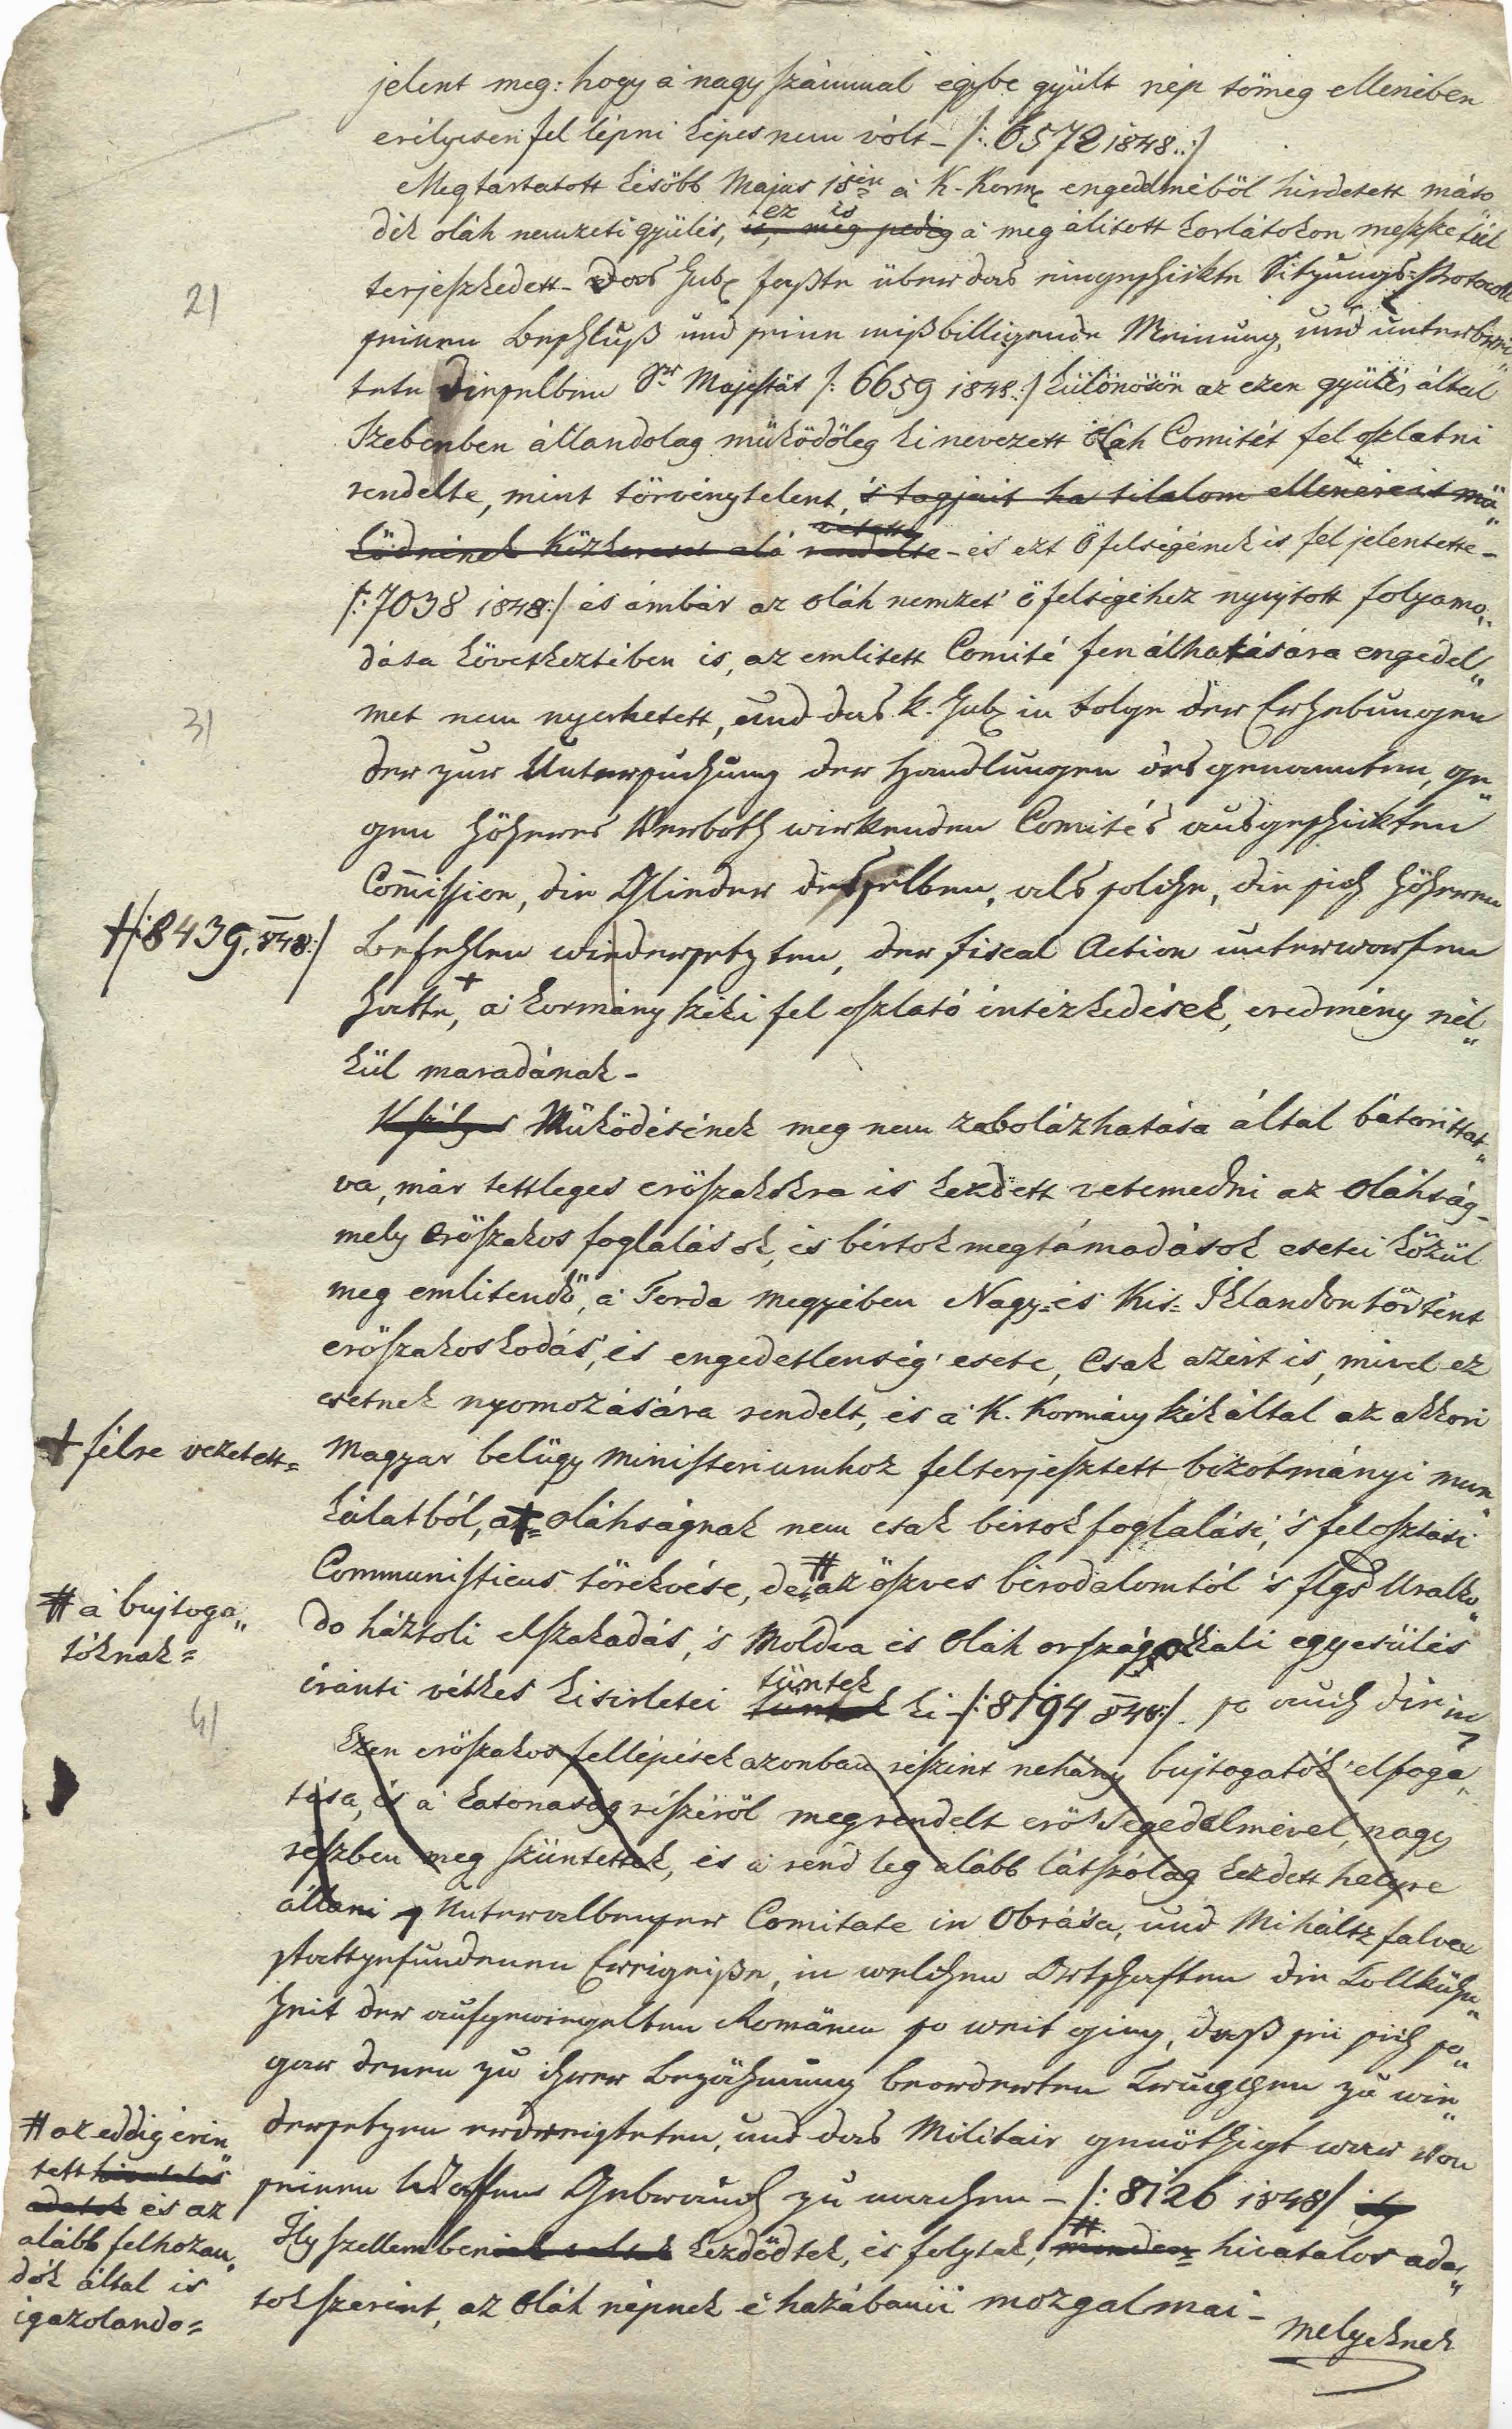 jelent meg: hogy a' nagy számmal egybe gyült nép tömeg ellenében
erélyesen fel lépni képes nem vólt – /: 6572 1848. :/
Megtartatott késöbb Majus 15én a' K. Korm. engedelméböl hirdetett máso
dik oláh nemzeti gyülés, is, még pedig ez is a' meg álitott korlátokon messze túl
2/
terjeszkedett – Das Gub. faßte über das eingeschickte Sitzungs-Protocoll
seinen Beschluß und seine mißbilligende Meinung, und unterbrei
tete dieselben Sr Majestät /: 6659 1848. :/ különösön az ezen gyülés által
Szebenben állandolag müködöleg ki nevezett Oláh Comitét fel oszlatni
rendelte, mint törvénytelent, 's tagjait ha tilalom ellenére is mü„
ködnének Közkereset alá rendelte – és ezt Ö felségének is fel jelentette –
/: 7038 1848 :/ és ámbár az oláh nemzet' ö felségéhez nyujtott folyamo„
dása következtében is, az emlitett Comité fen álhatására engedel„
3/
met nem nyerhetett, und das k. Gub. in Folge der Erhebungen
der zur Untersuchung der Handlungen des genannten, ge„
gen höheres Verboth wirkenden Comités ausgeschickten
Com̅ission, die Glieder desselben, als solche, die sich höheren
+/: 8439. 848 :/
Befehlen wiedersetzten, der fiscal Action unterworfen
hatte,+ a' kormány széki fel oszlató intézkedések, eredmény nél„
kül maradának –
Müködésének meg nem zabolázhatása által bátorittat„
va, már tettleges eröszakokra is kezdett vetemedni az oláhság –
mely eröszakos foglalások, és birtok megtámadások esetei közül
meg emlitendö, a' Torda megyében Nagy= és Kis= Iklandon történt
eröszakoskodás, és engedetlenség' esete, csak azért is, mivel ez
esetnek nyomozására rendelt, és a' K. Kormány szék által az akkori
+ félre vezetett=
Magyar belügy ministeriumhoz felterjesztett bizotmányi mun„
kálatból, a+= oláhságnak nem csak birtok foglalási, 's felosztási
Communisticus törekvése, de # az öszves birodalomtól 's flgs Uralko„
# a' bujtoga„
tóknak=
do háztoli elszakadás, 's Moldva és Oláh országokkali egyesülés
iránti vétkes kisérletei tüntek ki – /: 8194 848 :/. so auch die in
4/
Ezen eröszakos fellépések azonban részint nehány bujtogatók' elfoga„
tása, és a' katonaság részéröl megrendelt erö' segedelmével, nagy
részben meg szüntettek, és a' rend leg alább látszólag kezdett helyre
állani Unteralbenser Comitate in Obrása, und Miháltz falva
stattgefundenen Ereigniße, in welchen Ortschaften die Tollkühn„
heit der aufgewiegelten Romänen so weit ging, daß sie sich so„
gar denen zu ihrer Bezähmung beorderten Truppen zu wie„
dersetzen erdreisteten, und das Militair genöthigt war von
seinen Waffen Gebrauch zu machen – /: 8126 1848 /
# az eddig érin„
tett és az
alább felhozan„
dók által is
igazolando=
Ily szellemben kezdödtek, és folytak, # minden= hivatalos ada„
tok szerint, az oláh népnek e' hazábani mozgalmai –
melyeknek